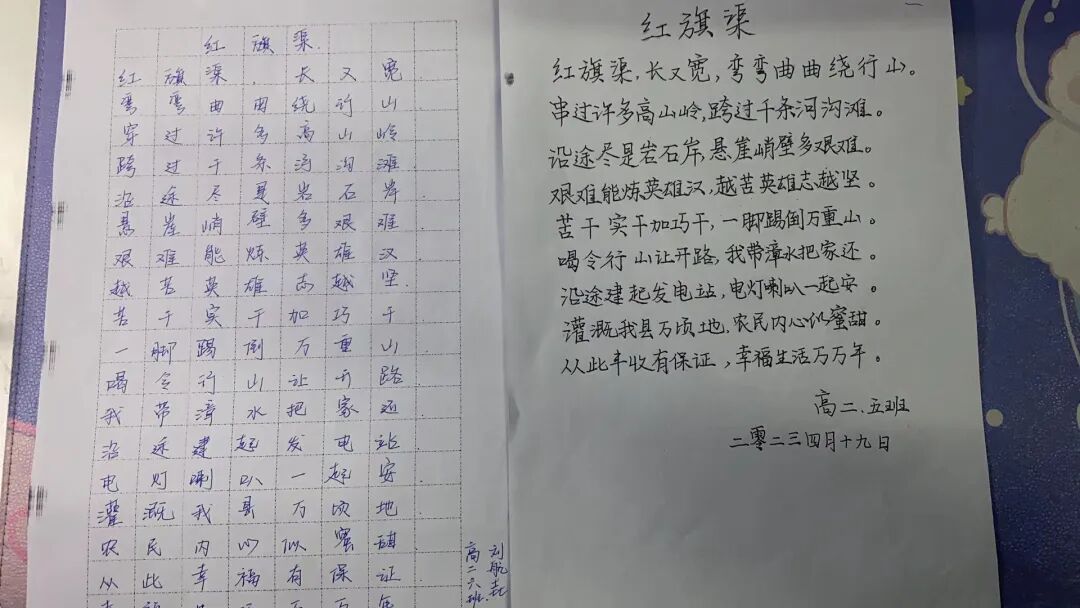 红旗渠.
红旗渠.长又宽
弯弯曲曲绕行山
穿过许多高山岭
跨过千条河沟滩
沿途尽是岩石岸
悬崖峭壁多艰难
艰难能炼英雄汉
越苦英雄志越坚.
苦干实干加巧干
一脚踢倒万重山
喝令行山让开路
我带漳水把家还
沿途建起发电站
电灯喇叭一起安
灌溉我县万顷地
农民内心似蜜甜
从此幸福有保证
刘航
高二六班
一
红旗渠
红旗渠,长又宽,弯弯曲曲绕行山。
串过许多高山岭,跨过千条河沟滩。
沿途尽是岩石岸,悬崖峭壁多艰难。
艰难能炼英雄汉,越苦英雄志越坚。
苦干实干加巧干,一脚踢倒万重山。
喝令行山让开路,我带漳水把家还。
沿途建起发电站,电灯喇叭一起安。
灌溉我县万顷地,农民内心似蜜甜。
从此丰收有保证,幸福生活万万年。
高二.五班
二零二三四月十九日